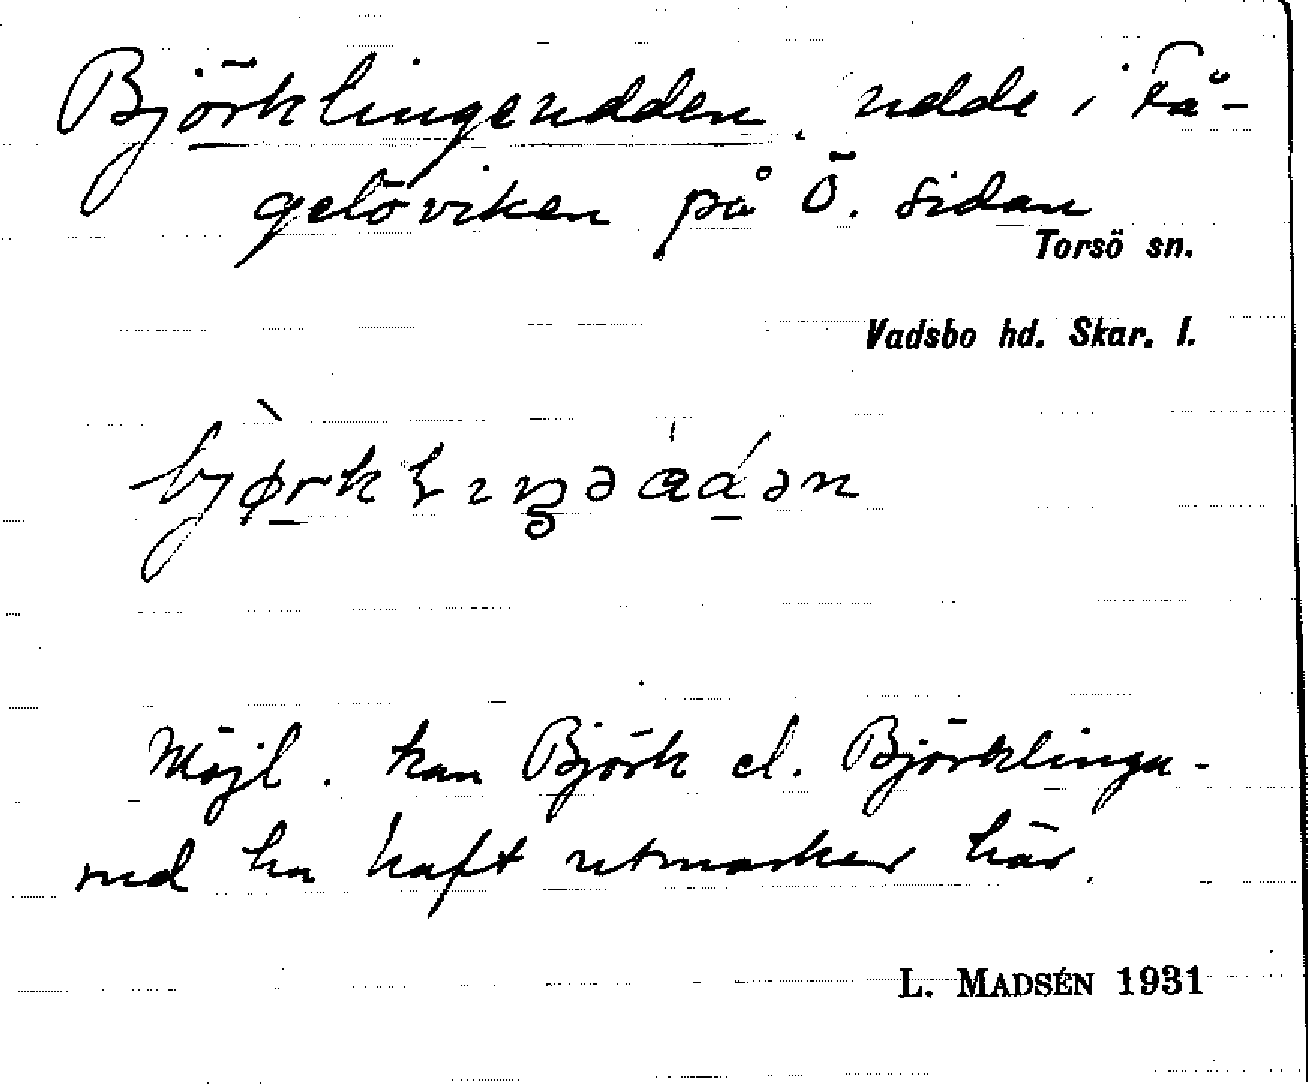 Björklingeudden, udde i Få-
gelöviken på Ö. sidan
Torsö sn.
Vadsbo hd. Skar. l.
Möjl. kan Björk el. Björklinga-
rud ha haft utmarker här.
L. MADSÉN 1931